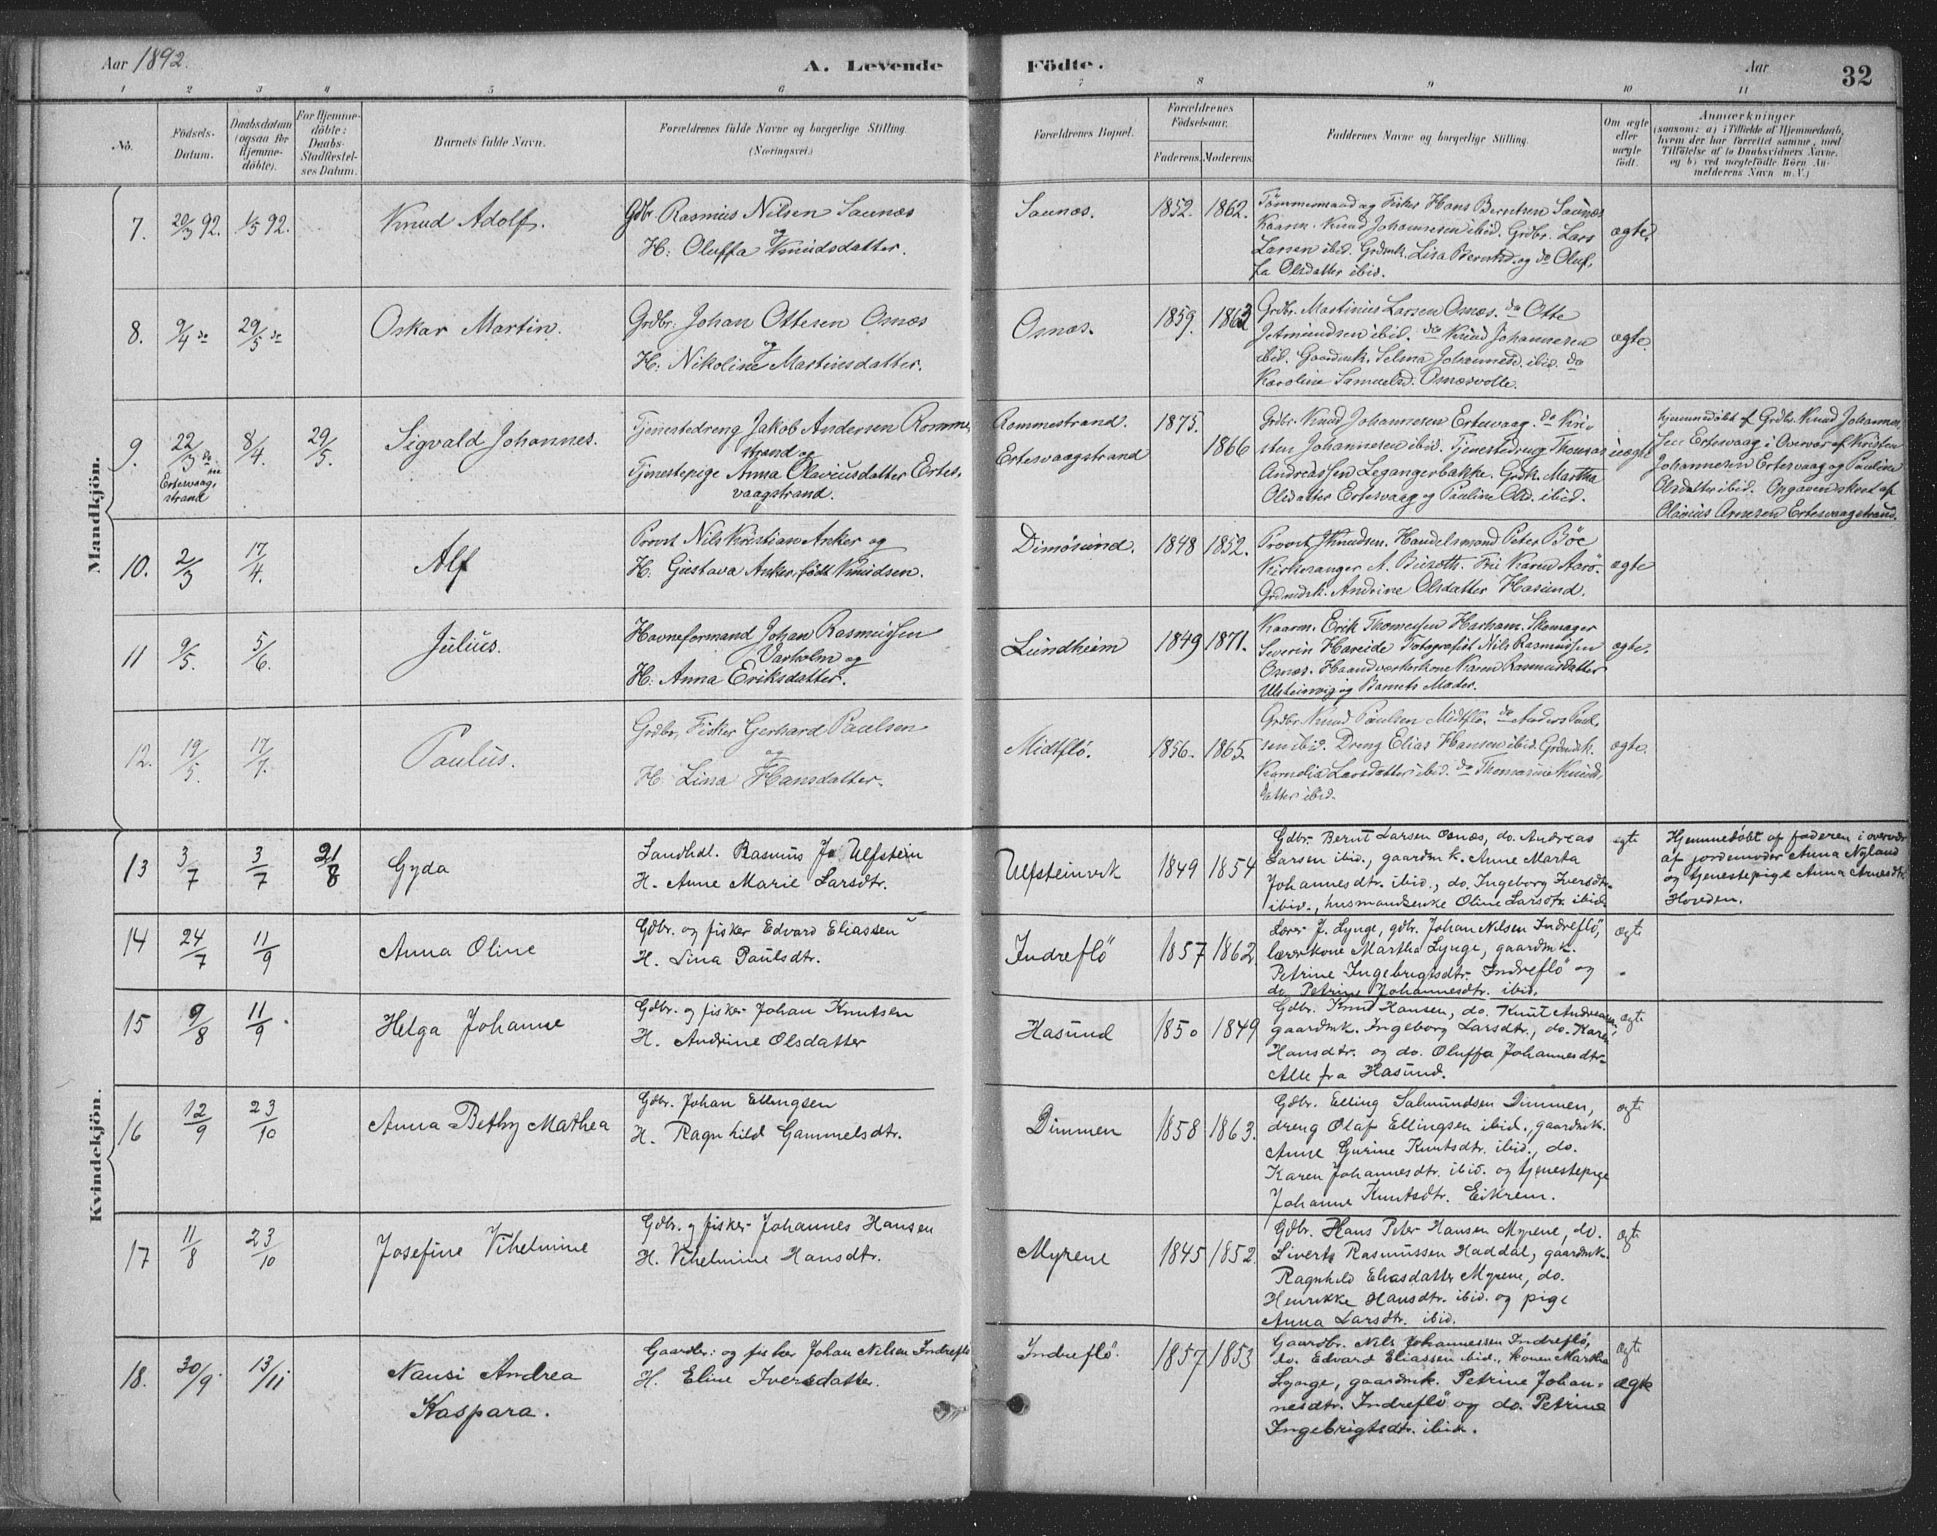 Aar 1892.
A. Levende
Födte.
Aar
32
1 2 3 4 5 6 7 8 9 10 11
No.
Födsels-
Datum.
Daabsdatum
(ogsaa for
Hjemme-
döbte).
For Hjemme-
döbte:
Daabs-
Stadfæstel-
ses Datum.
Barnets fulde Navn.
Forældrenes fulde Navne og borgerlige Stilling.
(Næringsvei.)
Forældrenes Bopæl.
Forældrenes
Födselsaar.
Faderens.
Moderens.
Faddernes Navne og borgerlige Stilling.
Om ægte
eller
uægte
födt.
Anmærkninger
(saasom: a) i Tilfælde af Hjemmedaab,
hvem der har forrettet samme, med
Tilföielse af to Daabsvidners Navne,
og b) ved uægtefödte Börn An-
melderens Navn m. V.)
Mandkjön.
7. 20/3 92. 1/5 92. Knud Adolf.
Gdbr. Rasmus Nilsen Saunæs
og
H: Oluffa Knudsdatter.
Saunæs. 1852. 1862.
og Fisker Hans Berntsen Saunæs
Kaarm. Knud Johannesen ibid. Grdbr. Lars
Larsen ibid. Grdmk. Lisa Berntsd. og do Oluf,
fa Olsdatter ibid.
ægte.
8. 9/4 do 29/5 do Oskar Martin.
Grdbr. Johan Ottesen Osnæs
og
H: Nikoline Martinsdatter.
Osnæs. 1859. 1863
Grdbr. Martinus Larsen Osnæs. do Otte
Jetmundsen ibid. do Knud Johannesen
ibid. Gaardmk. Selma Johannesd. ibid. do
Karoline Samuelsd. Osnæsvolle.
ægte.
9. 22/3 do
Ertesvaag
strand
8/4. 29/5. Sigvald Johannes.
Tjenestedreng Jakob Andersen Romme,
strand og
Tjenestepige Anna Olariusdatter Ertes,
vaagstrand.
Rommestrand. 1875.
Ertesvaagstrand 1866
Grdbr. Knud Johannesen Ertesvaag. do Kri-
sten Johannesen ibid. Tjenestedreng Thomas
Andreassen Legangerbakke. Grdk. Martha
Olsdatter Ertesvaag og Pauline Olsd. ibid.
uægte
hjemmedöbt af Grdbr. Knud Johannes,
sen Ertesvaag i Overvær af Kristen
Johannesen Ertesvaag og Pauline
Olsdatter ibid. Opgaven skeet af
Olarius Ertesvaagstrand.
10. 2/3 17/4. Alf
Provst Nils Kristian Anker og
H: Gustava Anker, född Knudsen.
Dimösund. 1848 1852.
Provst J Knudsen. Handelsmand Peter Böe
Kirkesanger A. Buseth. Fru Karen Aarö.
Grdmdsk. Andrine Olsdatter Hasund.
ægte
11 9/5 5/6. Julius.
Havneformand Johan Rasmussen
Varholm og
H: Anna Eriksdatter.
Lundheim 1849 1871.
Kaarm. Erik Thomessen Harham. Skomager
Severin Hareide Fotografist Nils Rasmussen
Osnæs. Haandverkerkone Karen Rasmusdatter
Ulsteinvig og Barnets Moder.
ægte.
12. 19/5. 17/7. Paulus.
Grdbr, Fisker Gerhard Paulsen
og
H. Lina Hansdatter.
Midtflö. 1856. 1865.
Grdbr Knud Paulsen Midtflö. do Anders Paul,
sen ibid. Dreng Elias Hansen ibid. Grdmdsk.
Kornelia Larsdatter ibid. do Thomasine Knuds,
datter ibid.
ægte.
Kvindekjön.
13 3/7 3/7 21/8 Gyda
Landhdl. Rasmus J. Ulfstein
H. Anne Marie Larsdtr.
Ulfsteinvik 1849 1854
Gdbr. Bernt Larsen Osnæs, do. Andreas
Larsen ibid., gaardmk. Anne Marta
Johannesdtr. ibid., do. Ingeborg Iversdtr.
ibid., husmandsenke Oline Larsdtr. ibid.
ægte
Hjemmedöbt af faderen i overvær
af jordemoder Anna Nyland
og tjenestepige Anna Arnesdtr.
Hovden.
14 24/7 11/9 Anna Oline
Gdbr. og fisker Edvard Eliassen
H. Lina Paulsdtr.
Indreflö 1857 1862.
Lærer J. Lynge, gdbr. Johan Nilsen Indreflö,
lærerkone Martha Lynge, gaardmk.
Petrine Ingebrigtsdtr. Indreflö og
do Petrine Johannesdtr. ibid.
ægte
15 9/8 11/9. Helga Johanne
Gdbr. og fisker Johan Knutsen
H. Andrine Olsdatter
Hasund 1850 1849
Gdbr. Knud Hansen, do. Knut Andreasen,
gaardmk. Ingeborg Larsdtr., do. Karen
Hansdtr. og do. Oluffa Johannesdtr.
Alle fra Hasund.
ægte
16 12/9 23/10 Anna Bethy Mathea
Gdbr. Johan Ellingsen
H. Ragnhild Gammelsdtr.
Dimmen 1858 1863.
Gdbr. Elling Salmundsen Dimmen,
dreng Olaf Ellingsen ibid., gaardmk.
Anne Gurine Knutsdtr. ibid., do.
Karen Johannesdtr. ibid. og tjenestepige
Johanne Knutsdtr. Eikrem.
ægte
17 11/8 23/10 Josefine Vilhelmine
Gdbr. og fisker Johannes Hansen
H. Vilhelmine Hansdtr.
Myrene 1845 1852.
Gdbr. Hans Peter Hansen Myrene, do.
Sivert Rasmussen Haddal, gaardmk.
Ragnhild Eliasdatter Myrene, do.
Henrikke Hansdtr. ibid. og pige
Anna Larsdtr. ibid.
ægte
18. 30/9. 13/11 Nansi Andrea
Kaspara.
Gaardbr. og fisker Johan Nilsen Indreflö
H. Eline Iversdatter.
Indreflö. 1857 1853
Gaardbr. Nils Johannessen Indreflö,
do. Edvard Eliassen ibid., konen Martha
Lynge, gaardmk. Petrine Johan-
nesdtr. Indreflö og do. Petrine
Ingebrigtsdtr. ibid.
ægte
ægte